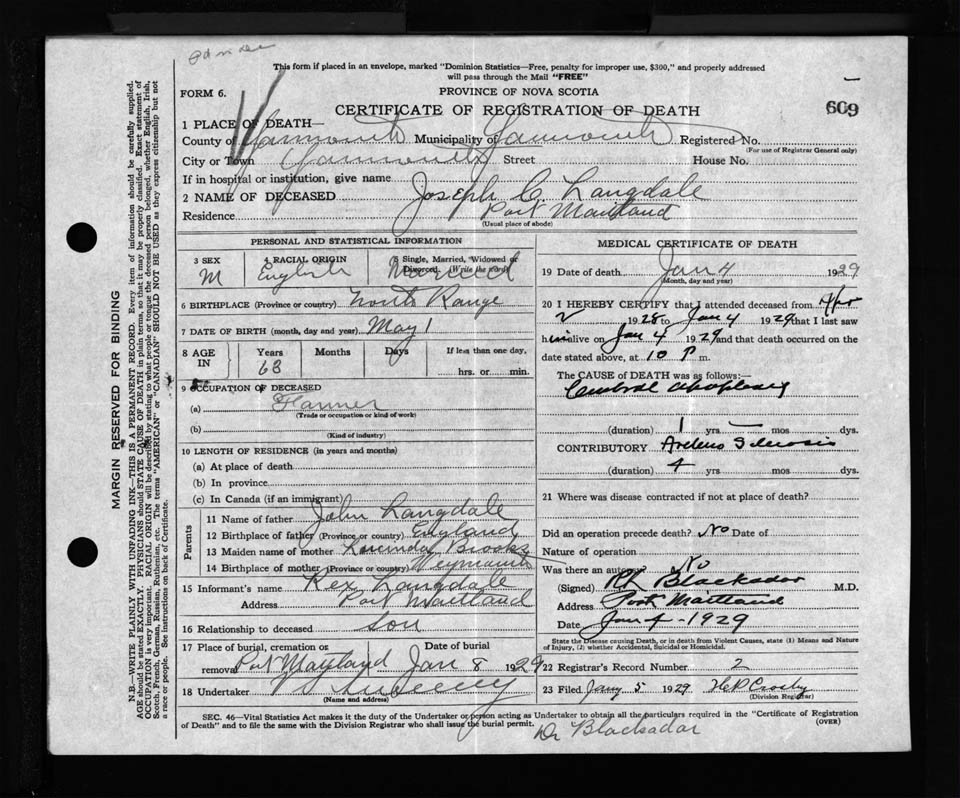 This form if placed in an envelope, marked "Dominion Statistics—Free, penalty for improper use, $300," and properly addressed
will pass through the Mail "FREE"
FORM 6.
PROVINCE OF NOVA SCOTIA
CERTIFICATE OF REGISTRATION OF DEATH
609
1 PLACE OF DEATH—
County of Yarmouth Municipality of Yarmouth Registered No.
(For use of Registrar General only)
City or Town Yarmouth Street House No.
If in hospital or institution, give name
2 NAME OF DECEASED Joseph C. Langdale
Residence Port Maitland
(Usual place of abode)
PERSONAL AND STATISTICAL INFORMATION
3 SEX 4 RACIAL ORIGIN 5 Single, Married, Widowed or
Divorced. (Write the word)
M English Married
6 BIRTHPLACE (Province or country) North Range
7 DATE OF BIRTH (month, day and year) May 1
8 AGE IN Years Months Days If less than one day,
63 hrs. or min.
9 OCCUPATION OF DECEASED
(a) Farmer
(Trade or occupation or kind of work)
(b)
(Kind of industry)
10 LENGTH OF RESIDENCE (in years and months)
(a) At place of death
(b) In province
(c) In Canada (if an immigrant)
Parents
11 Name of father John Langdale
12 Birthplace of father (Province or country) England
13 Maiden name of mother Brooks
14 Birthplace of mother (Province or country) Weymouth
15 Informant's name Rex Langdale
Address Port Maitland
16 Relationship to deceased Son
17 Place of burial, cremation or removal Date of burial
Port Mayland Jan 8 1929
18 Undertaker
(Name and address)
MEDICAL CERTIFICATE OF DEATH
19 Date of death Jan 4 1929
(Month, day and year)
20 I HEREBY CERTIFY that I attended deceased from Apr
2 1928 to Jan 4 1929 that I last saw
him alive on Jan 4 1929 and that death occurred on the
date stated above, at 10 P m.
The CAUSE of DEATH was as follows:—
Cerebral apoplexy
(duration) 1 yrs — mos dys.
CONTRIBUTORY Arterio Sclerosis
(duration) 4 yrs mos dys.
21 Where was disease contracted if not at place of death?
Did an operation precede death? No Date of
Nature of operation
Was there an autopsy? No
(Signed) Blackadar M.D.
Address Port Maitland
Date Jan 4 - 1929
State the Disease causing Death, or in death from Violent Causes, state (1) Means and Nature
of Injury, (2) whether Accidental, Suicidal or Homicidal.
22 Registrar's Record Number 2
23 Filed Jany 5 1929 H P Crosby
(Division Registrar)
SEC. 46—Vital Statistics Act makes it the duty of the Undertaker or person acting as Undertaker to obtain all the particulars required in the "Certificate of Registration
of Death" and to file the same with the Division Registrar who shall issue the burial permit. (OVER)
Dr Blackadar
MARGIN RESERVED FOR BINDING
N.B.—WRITE PLAINLY WITH UNFADING INK—THIS IS A PERMANENT RECORD. Every item of information should be carefully supplied.
AGE should be stated EXACTLY. PHYSICIANS should STATE CAUSE OF DEATH in plain terms, so that it may be properly classified. Exact statement of
OCCUPATION is very important. RACIAL ORIGIN will be described by stating to what people or tongue the deceased person belonged, whether English, Irish,
Scotch, French, German, Russian, Ruthenian, etc. The terms "AMERICAN" or "CANADIAN" SHOULD NOT BE USED as they express citizenship but not
a race or people. See instructions on back of Certificate.